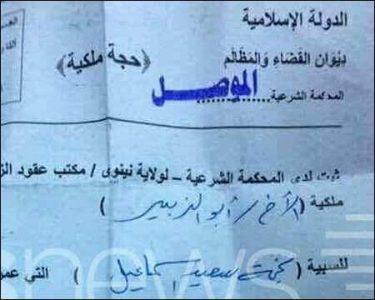 الدولة الإسلامية
ديوان القضاء والمظالم
﴿حجة ملكية﴾
المحكمة الشرعية الموصل
ثبت لدى المحكمة الشرعية – لولاية نينوى / مكتب عقود الز
ملكية (الأخ / أبو الزبير)
للسبية (سعيد اسماعيل) التي عمر
news